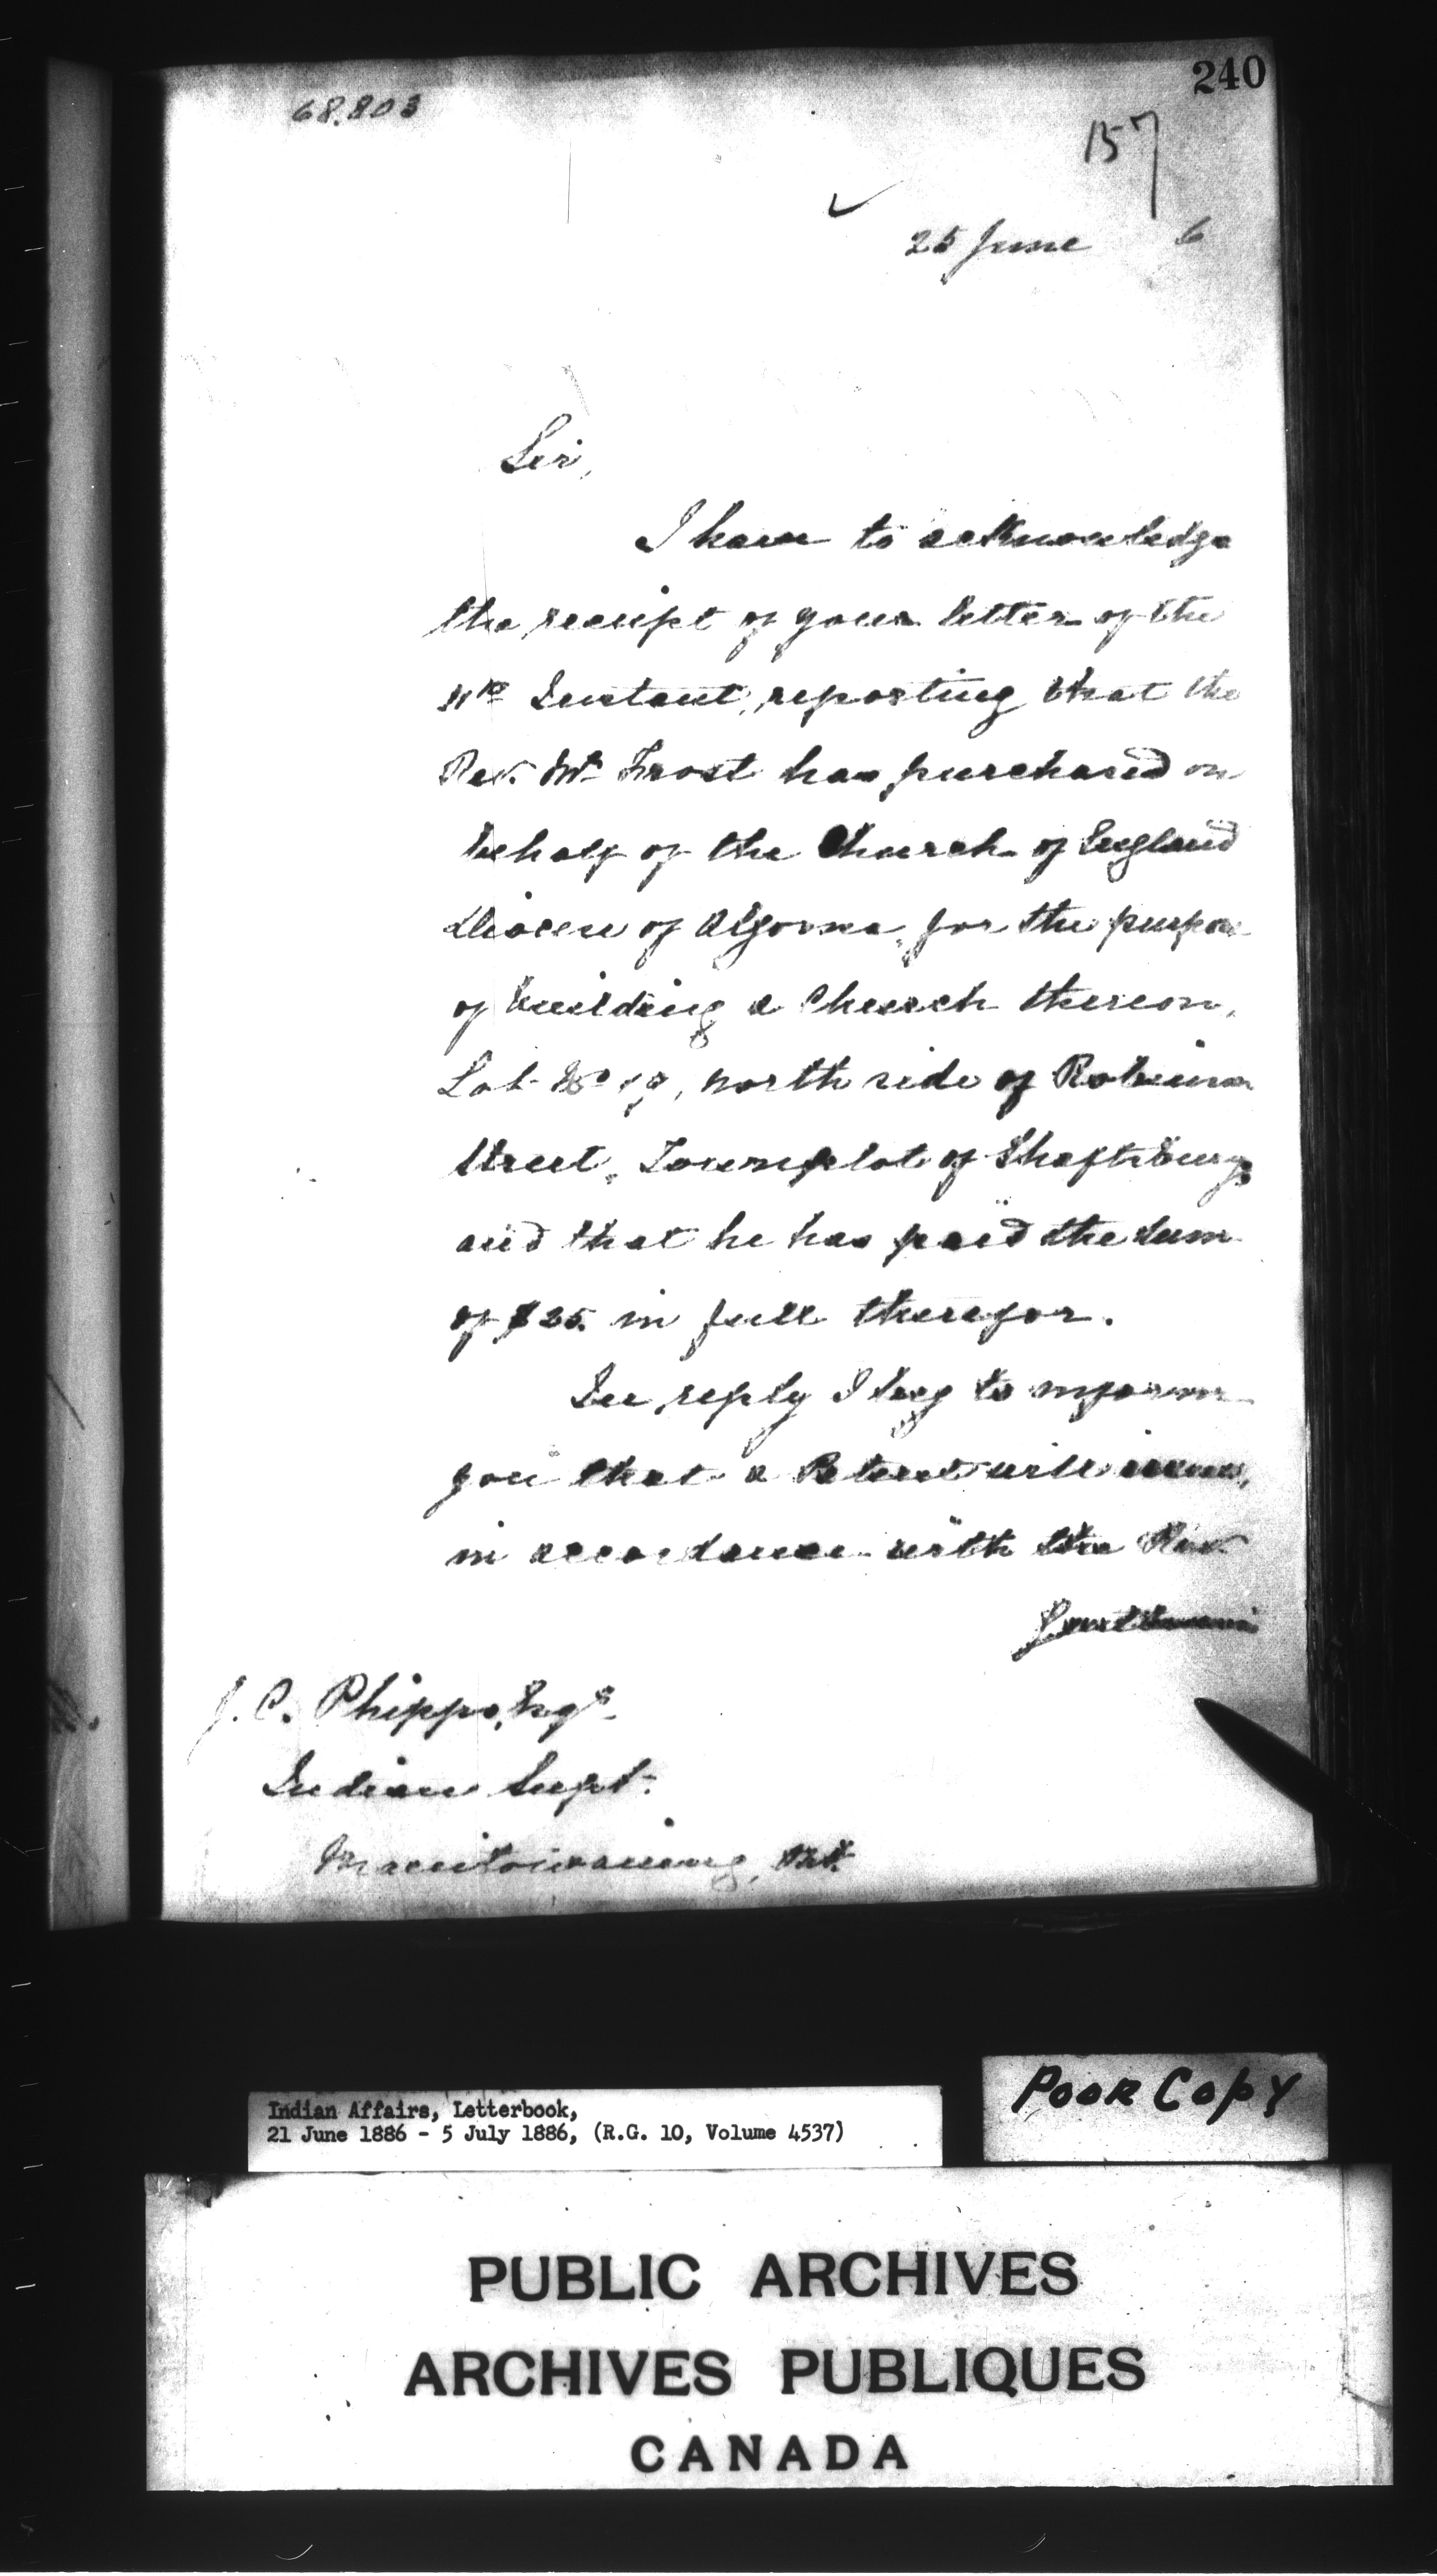 240
68.803
157
25 June 6
Sir,
I have to acknowledge
the receipt of your letter of the
Instant, reporting that the
Rev. Mr Frost has purchased on
behalf of the Church of England
Diocese of Algoma, for the purpose
of building a Church thereon,
Lot No north side of Robinson
Street, Townplot of Shaftsbury
and that he has paid the sum
of $25. in full therefor.
In reply I beg to inform
you that a Patent will issue,
in accordance with the Rev
Gentleman's
J. C. Phipps, Esqr
Indian Supt.
Manitowaning, Ont.
Poor Copy
Indian Affairs, Letterbook,
21 June 1886 - 5 July 1886, (R.G. 10, Volume 4537)
PUBLIC ARCHIVES
ARCHIVES PUBLIQUES
CANADA